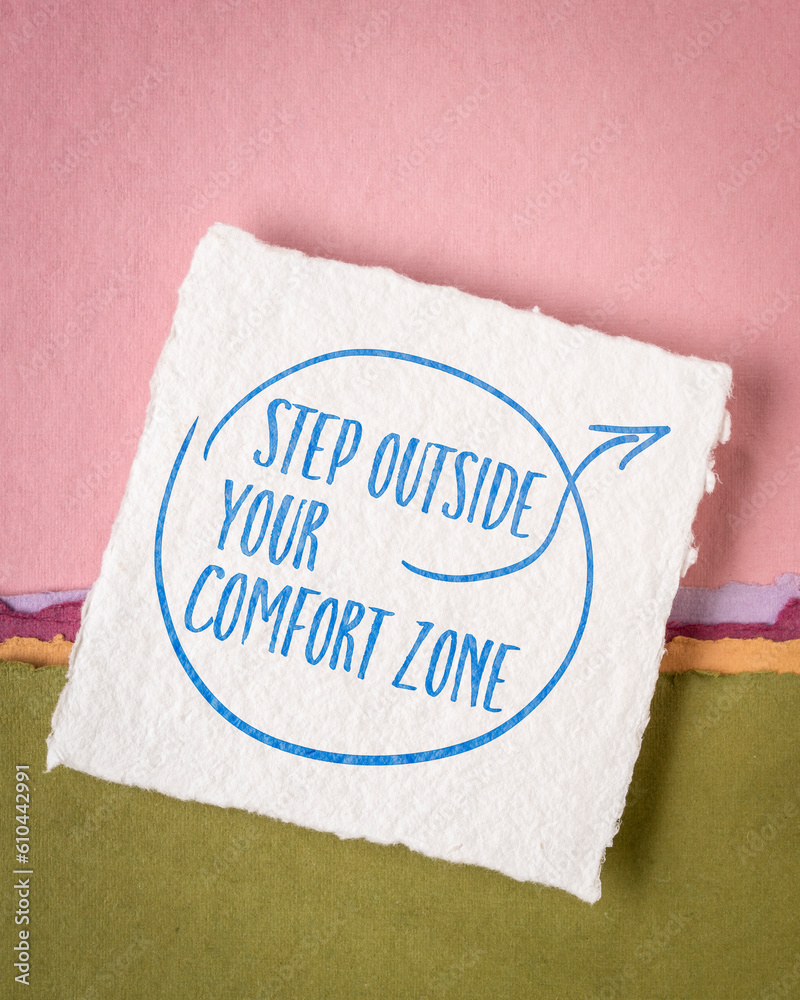 STEP OUTSIDE
YOUR
COMFORT ZONE
Adobe Stock | #610442991